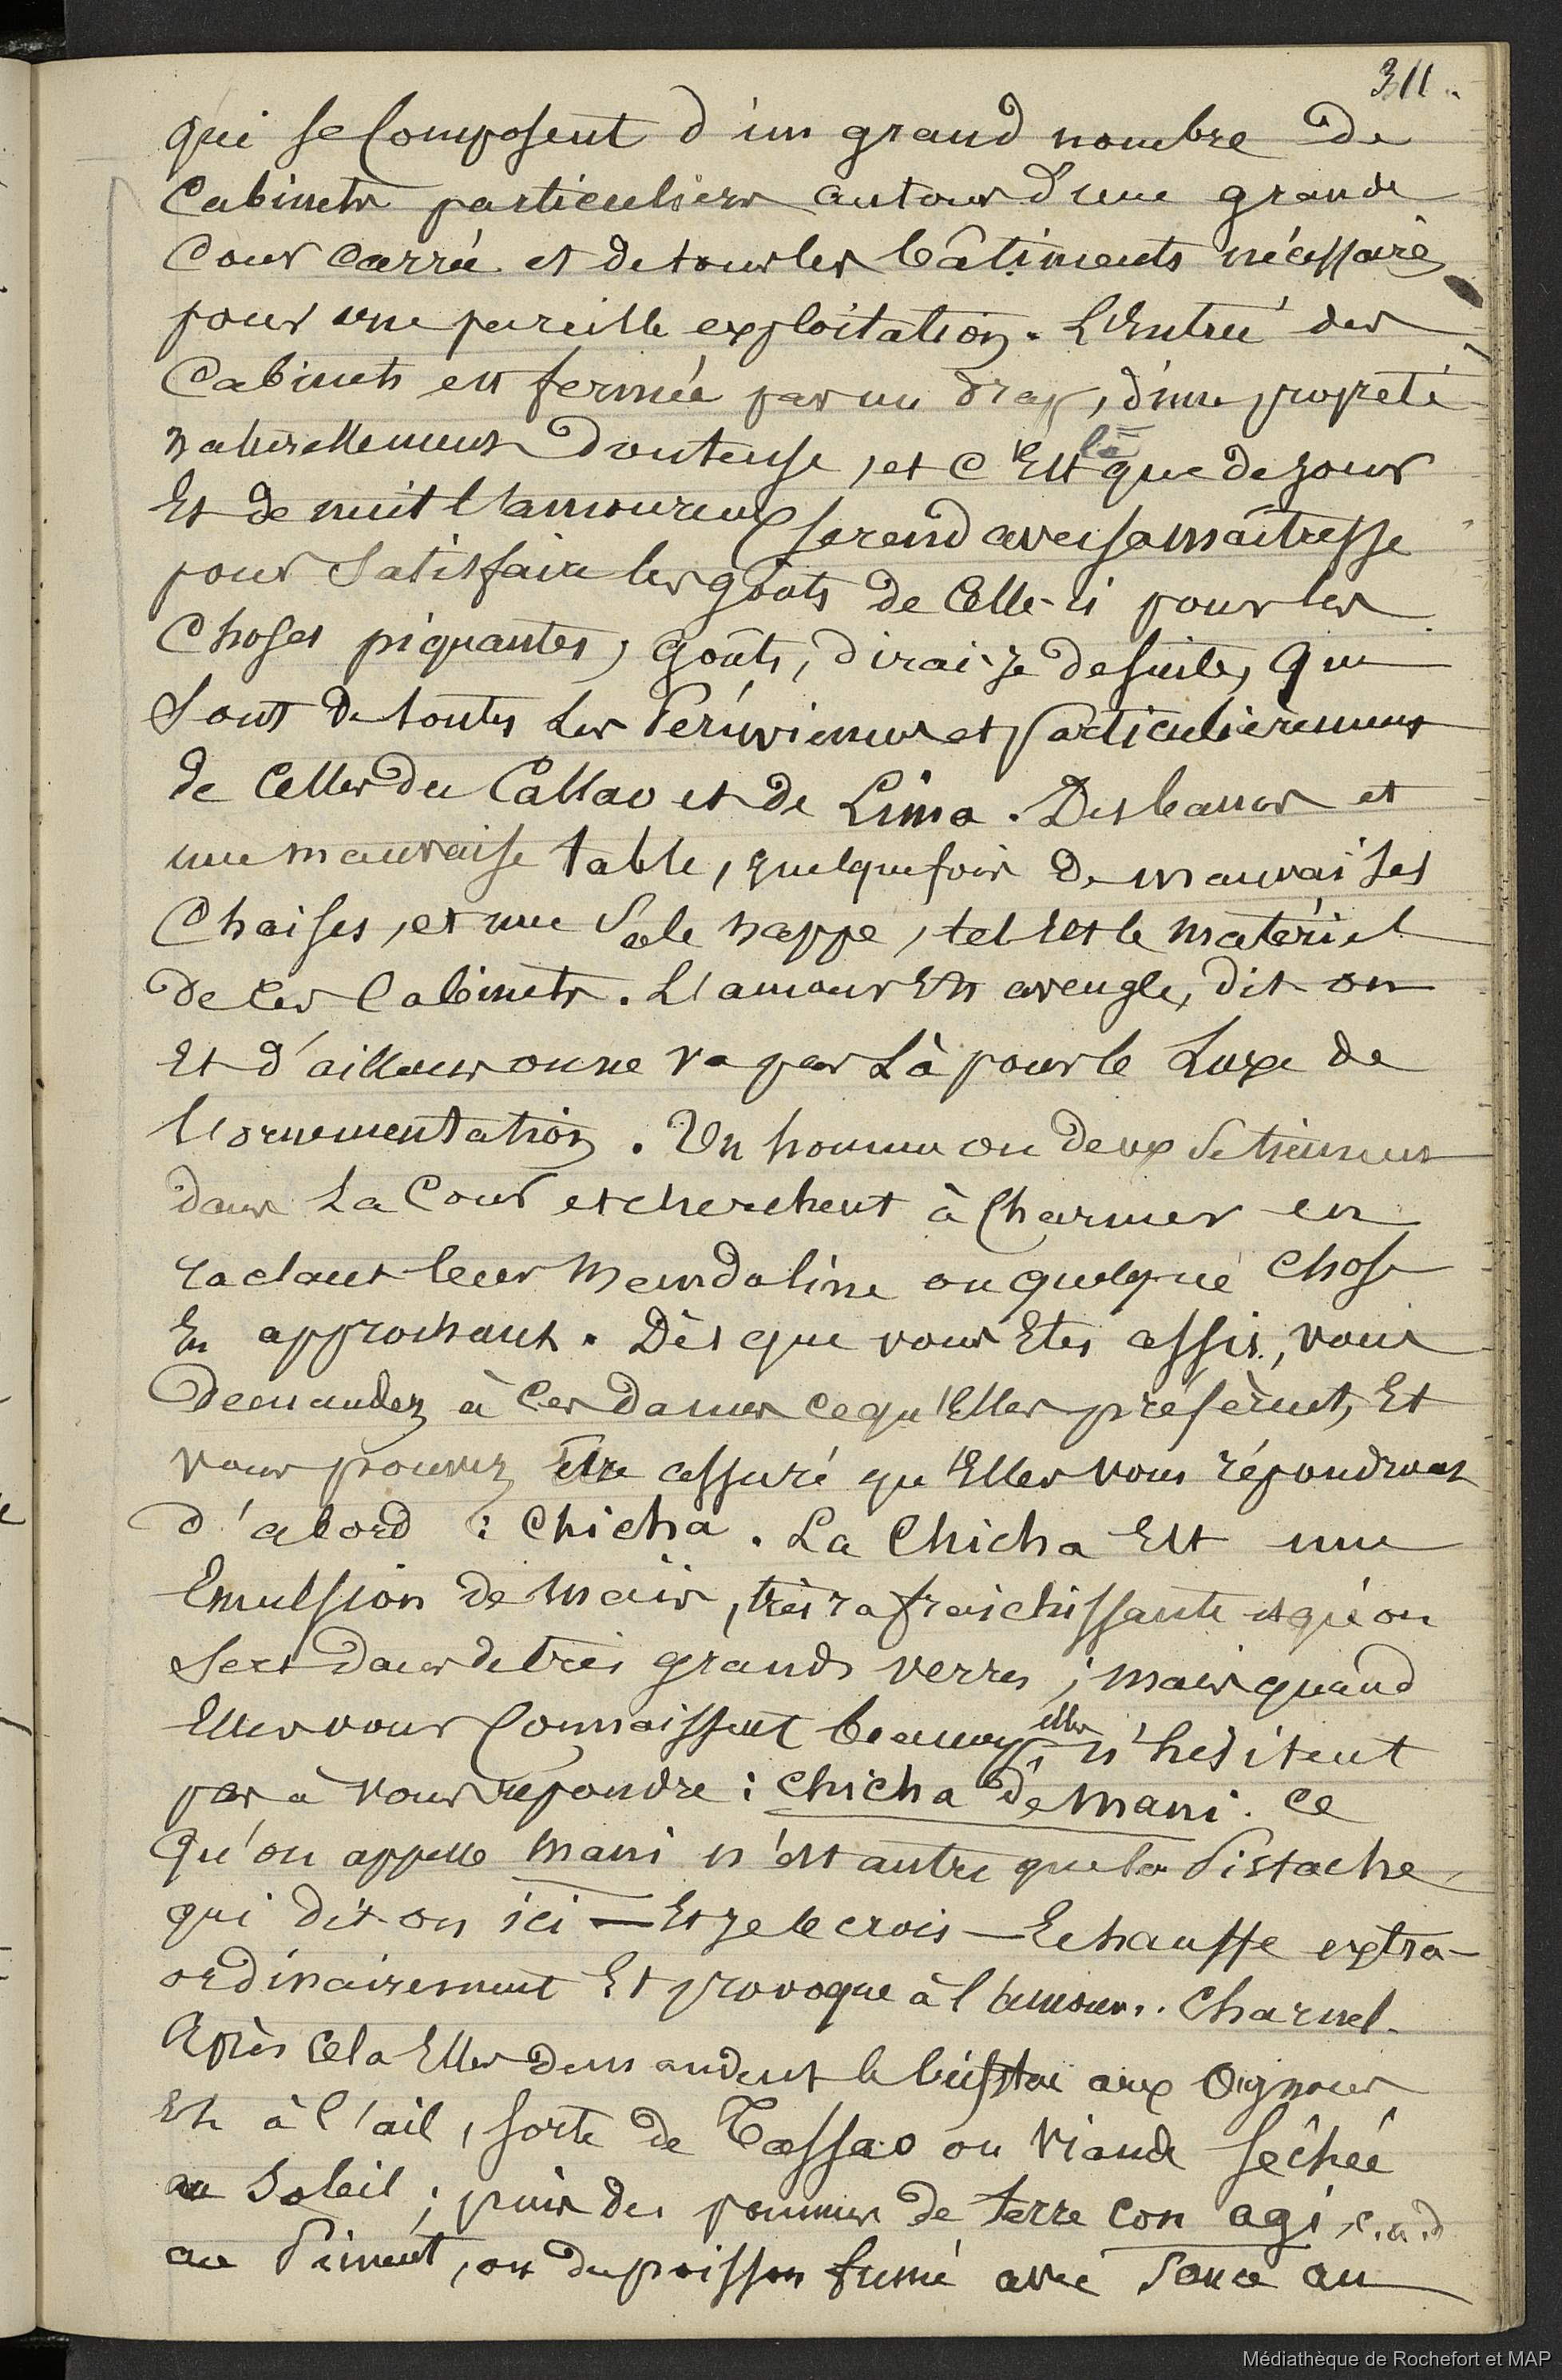 311.
qui se composent d'un grand nombre de
Cabinets particuliers autour d'une grande
Cour carrée et de tous les bâtiments nécessaires
pour une pareille exploitation. L'Entrée des
Cabinets est fermée par un drap, d'une propreté
naturellement douteuse, et c'Est là que de jour
Et de nuit l'amoureux se rend avec sa maîtresse
pour satisfaire les goûts de Celle-ci pour les
Choses piquantes, goûts, dirai-je de suite, qui
sont de toutes les Péruviennes et particulièrement
de Celles du Callao et de Lima. Des bancs et
une mauvaise table, quelquefois de mauvaises
Chaises, et une sale nappe, tel Est le matériel
de ces Cabinets. L'amour Est aveugle, dit on
Et d'ailleurs on ne va pas là pour le luxe de
l'ornementation. Un homme ou deux se tiennent
dans la Cour et cherchent à charmer en
raclant leur mandoline ou quelque chose
En approchant. Dès que vous Etes assis, vous
demandez à Ces dames ce qu'Elles préfèrent, Et
vous pouvez Etre assuré qu'Elles vous répondront
d'abord : Chicha. La Chicha Est une
Emulsion de maïs, très rafraichissante et qu'on
sert dans de très grands verres ; mais quand
Elles vous Connaissent beaucoup elles n'hésitent
pas à vous répondre : Chicha de mani. Ce
Qu'on appelle mani n'est autre que la Pistache
qui dit on ici — Et je le crois — Echauffe extra-
ordinairement Et provoque à l'amour.. Charnel.
Après cela Elles demandent le aux Oignons
Et à l'ail, sorte de Tassao ou viande séchée
au soleil ; puis des pommes de terre con agi, c.a.d
au Piment, ou du poisson fumé avec sauce au
Médiathèque de Rochefort et MAP